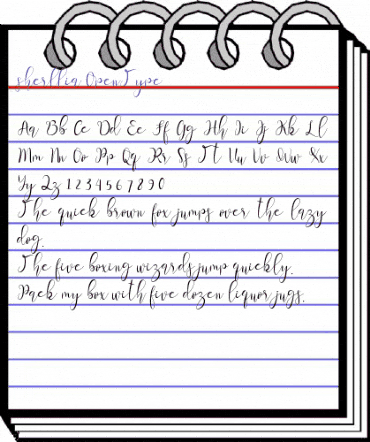 sherllia OpenType
Aa Bb Cc Dd Ee Ff Gg Hh Ii Jj Kk Ll
Mm Nn Oo Pp Qq Rr Ss Tt Uu Vv Ww Xx
Yy Zz 1 2 3 4 5 6 7 8 9 0
The quick brown fox jumps over the lazy
dog.
The five boxing wizards jump quickly.
Pack my box with five dozen liquor jugs.